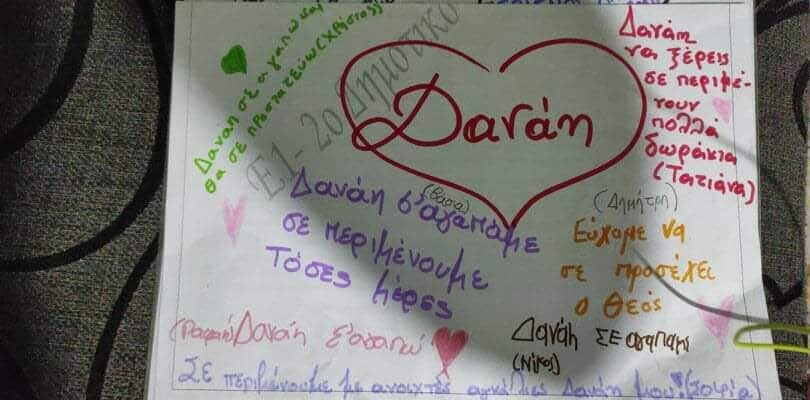 Δανάη σε αγαπώ και
θα σε προστατεύω (Χρήστος)
Ε1- 2ο Δημοτικό
Δανάη
Δανάη
να ξέρεις
σε περιμέ-
νουν
πολλά
δωράκια
(Τατιάνα)
Δανάη σ'αγαπάμε
σε περιμένουμε
Τόσες μέρες
(Δημήτρη)
Εύχομε να
σε προσέχει
ο Θεός
Δανάη Σ'αγαπώ
Δανάη ΣΕ αγαπάμε
(Νίκος)
Σε περιμένουμε με ανοιχτές αγκάλιες Δανάη μου! (Σοφία)